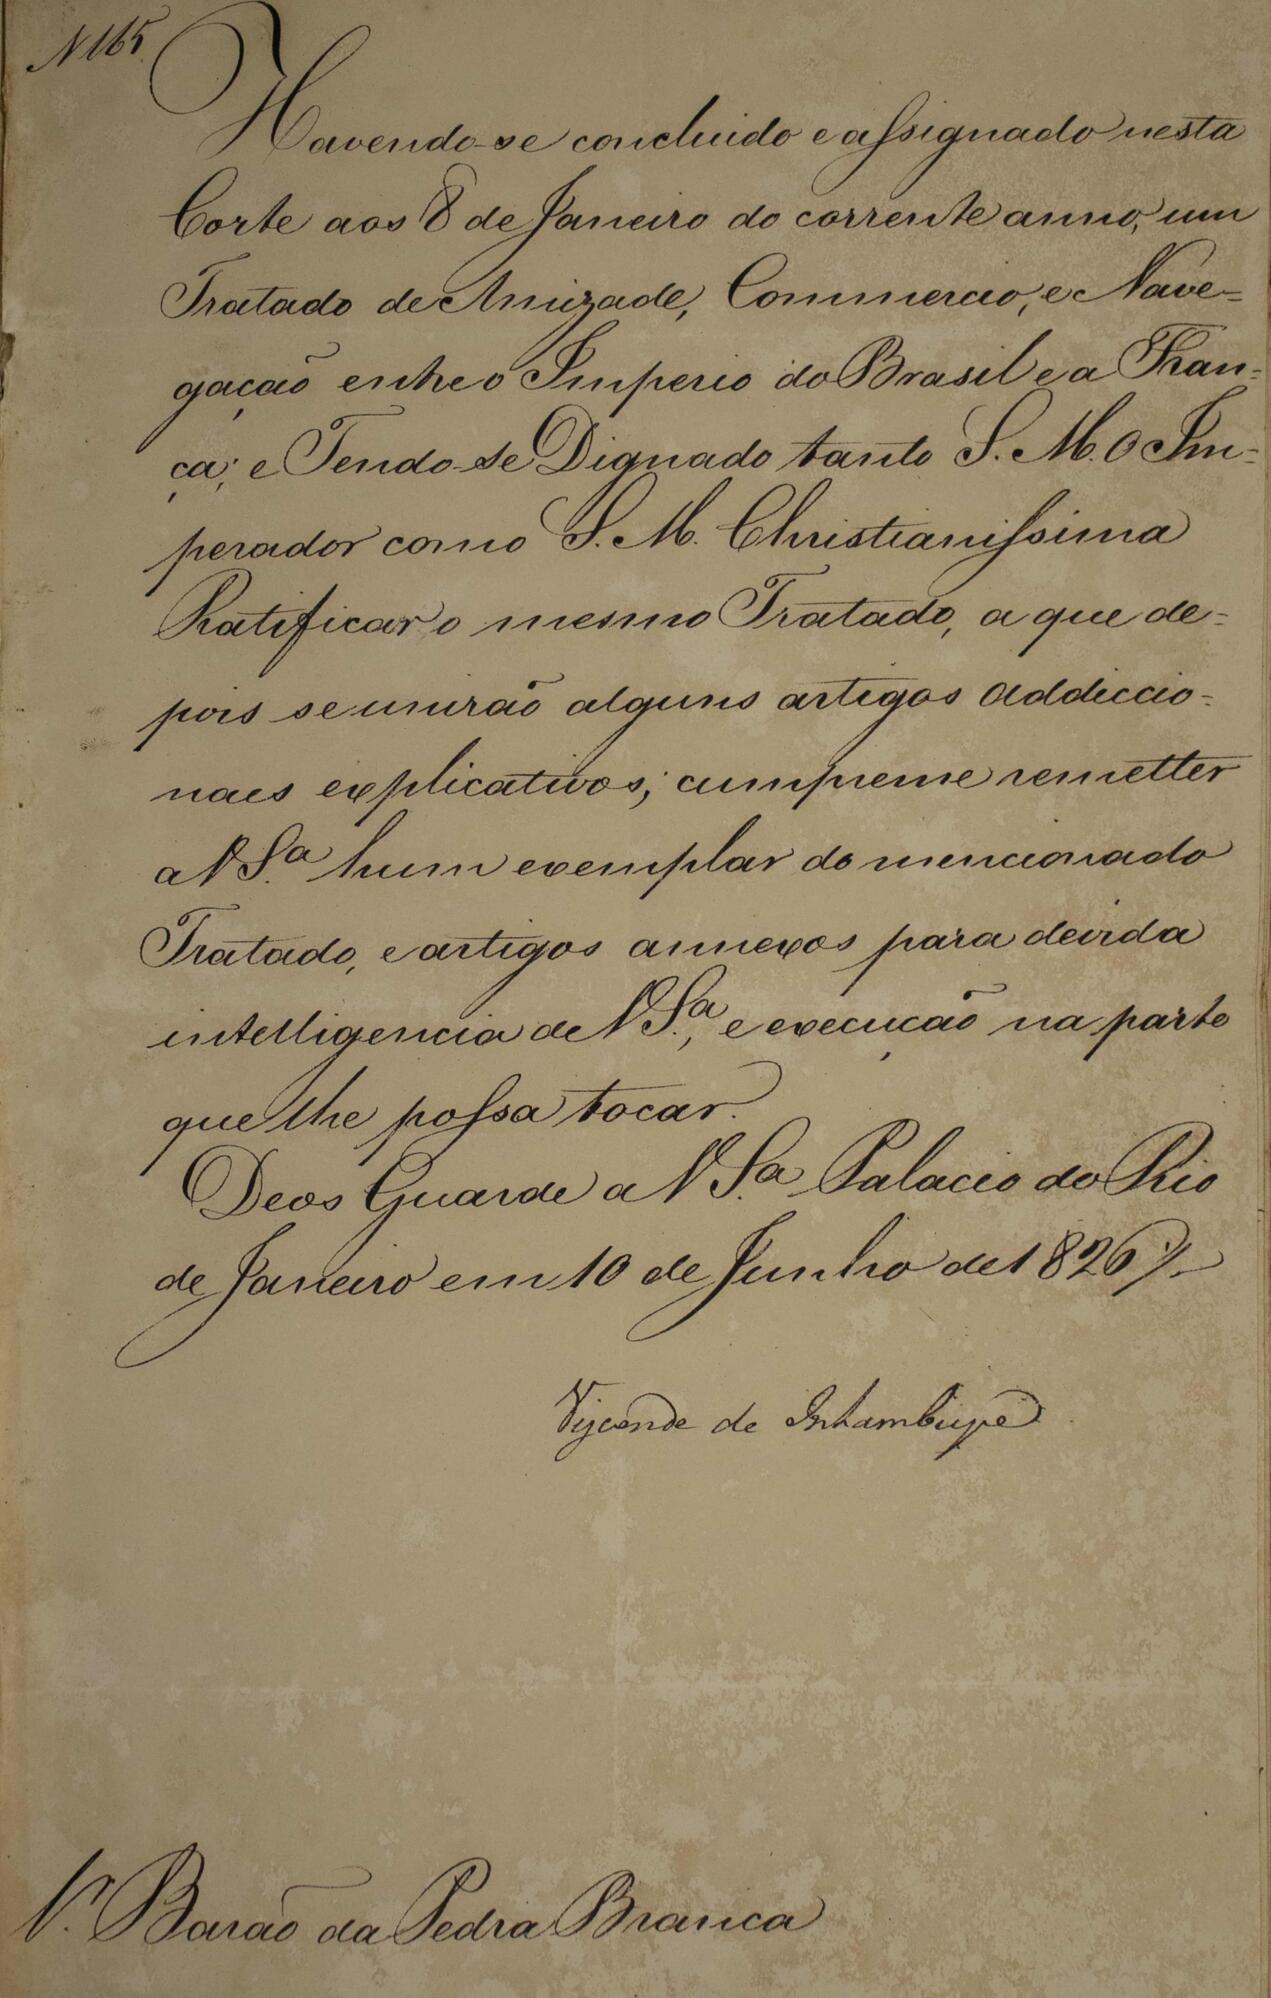 N 165.
Havendo-se concluido e assignado nesta
Corte aos 8 de Janeiro do corrente anno, um
Tratado de Amizade, Commercio, e Nave=
gação entre o Imperio do Brasil e a Fran=
ça; e Tendo-se Dignado tanto S. M. O Im=
perador como S. M. Christianissima
Ratificar o mesmo Tratado, a que de=
pois se unirão alguns artigos addiccio=
naes explicativos; cumpreme remetter
a V S.ª hum exemplar do mencionado
Tratado, e artigos annexos para devida
intelligencia de V S.ª, e execução na parte
que lhe possa tocar.
Deos Guarde a V S.ª Palacio do Rio
de Janeiro em 10 de Junho de 1826
Visconde de Inhambupe
Barão da Pedra Branca